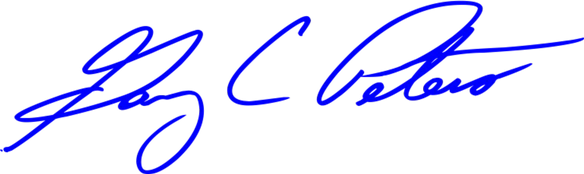 Gary C Peters